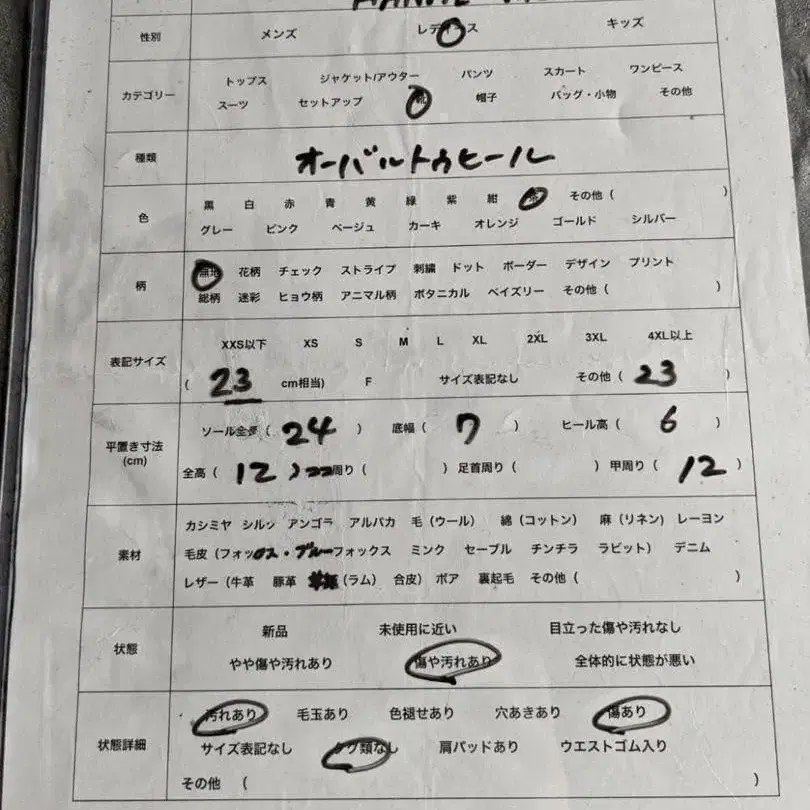 性別 メンズ レディース キッズ
カテゴリー トップス ジャケット/アウター パンツ スカート ワンピース
スーツ セットアップ 靴 帽子 バッグ・小物 その他
種類 オーバルトゥヒール
色 黒 白 赤 青 黄 緑 紫 紺 その他 ( )
グレー ピンク ベージュ カーキ オレンジ ゴールド シルバー
柄 無地 花柄 チェック ストライプ 刺繍 ドット ボーダー デザイン プリント
総柄 迷彩 ヒョウ柄 アニマル柄 ボタニカル ペイズリー その他 ( )
表記サイズ XXS以下 XS S M L XL 2XL 3XL 4XL以上
( 23 cm相当) F サイズ表記なし その他 ( 23 )
平置き寸法 (cm) ソール全長 ( 24 ) 底幅 ( 7 ) ヒール高 ( 6 )
全高 ( 12 ) 周り ( ) 足首周り ( ) 甲周り ( 12 )
素材 カシミヤ シルク アンゴラ アルパカ 毛 (ウール) 綿 (コットン) 麻 (リネン) レーヨン
毛皮 (フォックス・ブルーフォックス ミンク セーブル チンチラ ラビット) デニム
レザー (牛革 豚革 (ラム) 合皮) ボア 裏起毛 その他 ( )
状態 新品 未使用に近い 目立った傷や汚れなし
やや傷や汚れあり 傷や汚れあり 全体的に状態が悪い
状態詳細 汚れあり 毛玉あり 色褪せあり 穴あきあり 傷あり
サイズ表記なし タグ類なし 肩パッドあり ウエストゴム入り
その他 ( )